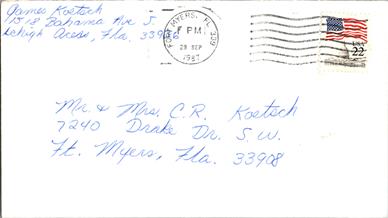 James Koetsch
1518 Bahama Ave S.
Lehigh Acres, Fla. 33936
FORT MYERS, FL 339
PM
29 SEP
1987
USA
22
Mr. & Mrs. C. R. Koetsch
7240 Drake Dr. S.W.
Ft. Myers, Fla. 33908